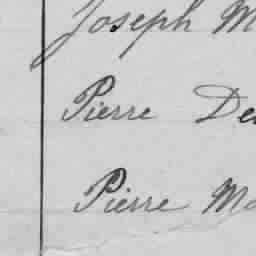 Joseph M
Pierre De
Pierre Ma